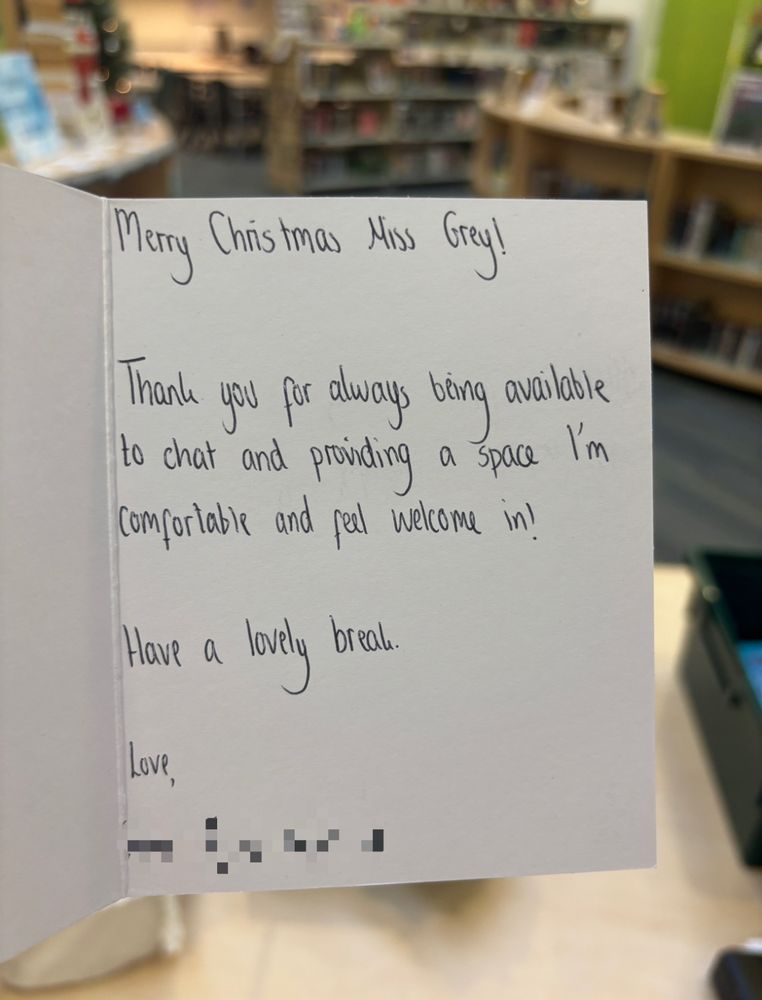 Merry Christmas Miss Grey!
Thank you for always being available
to chat and providing a space I'm
comfortable and feel welcome in!
Have a lovely break.
Love,